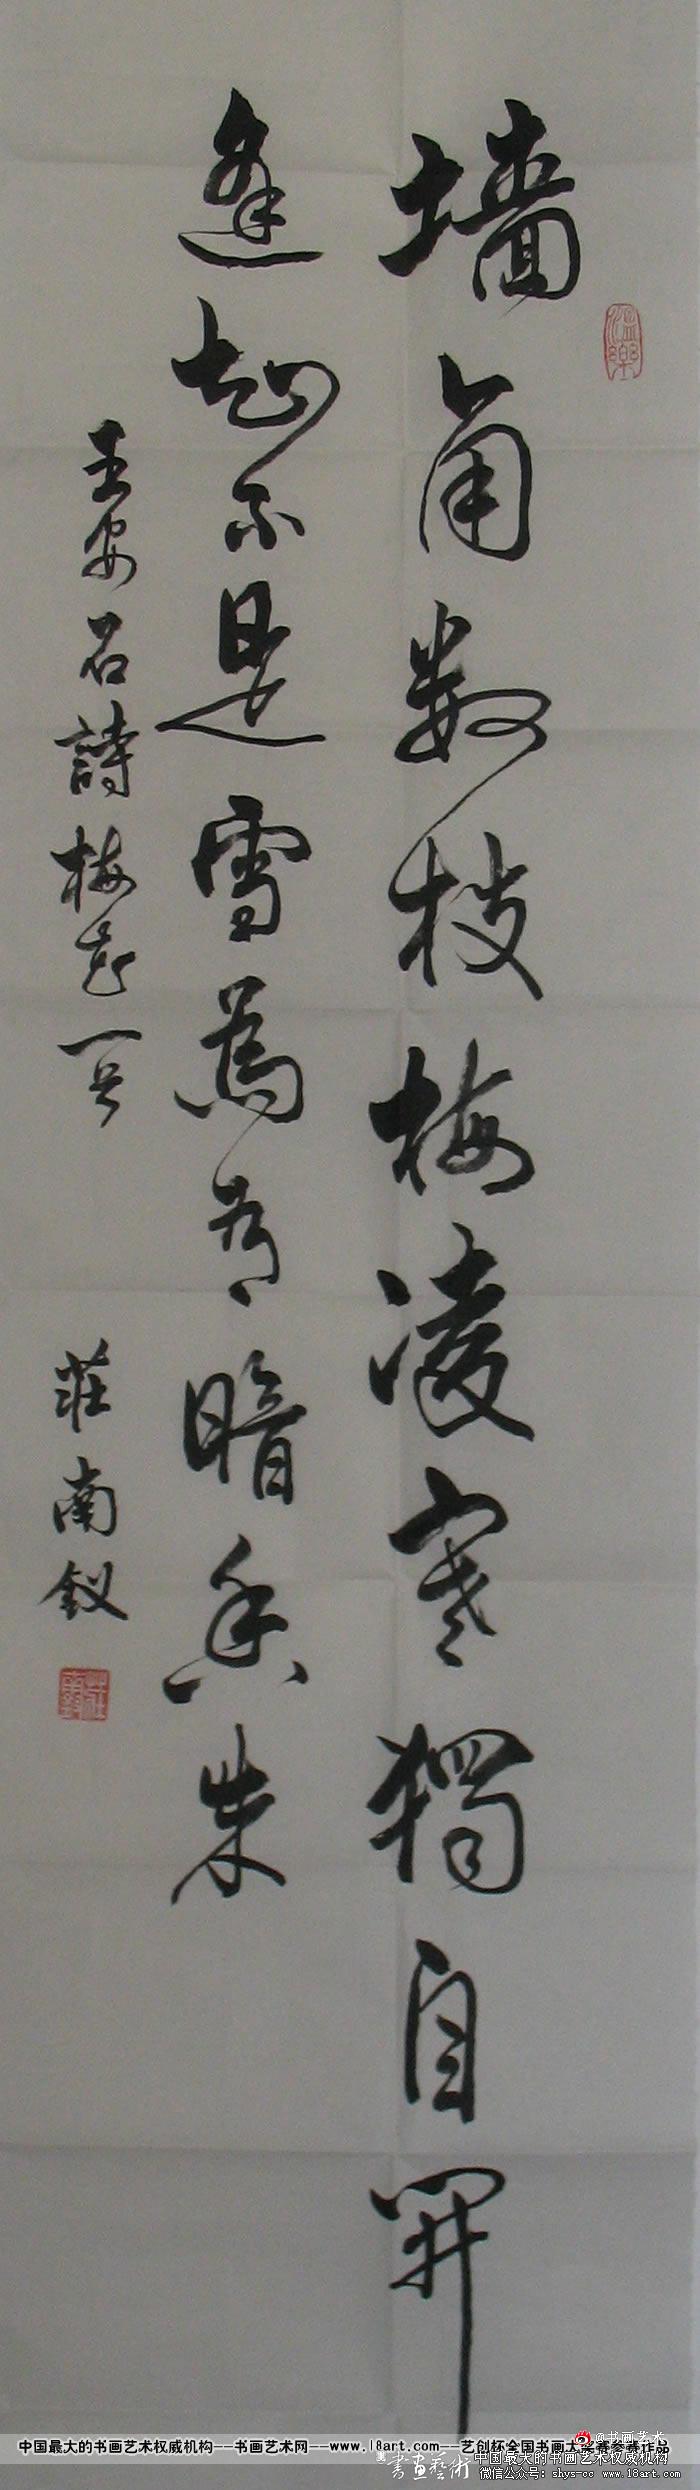 墙角数枝梅凌寒獨自開
遥知不是雪為有暗香来
王安石詩梅花一首
莊南釵
@书画艺术
中国最大的书画艺术权威机构--书画艺术网--www.18art.com--艺创杯全国书画大奖赛参赛作品
書畫藝術 中国最大的书画艺术权威机构
微信公众号: shys-cc www.18art.com